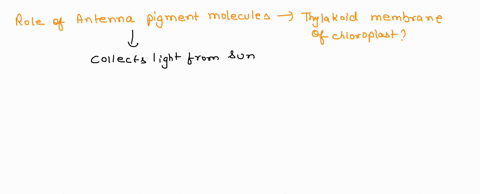 Role of Antenna pigment molecules → Thylakoid membrane
of chloroplast?
↓
Collects light from sun